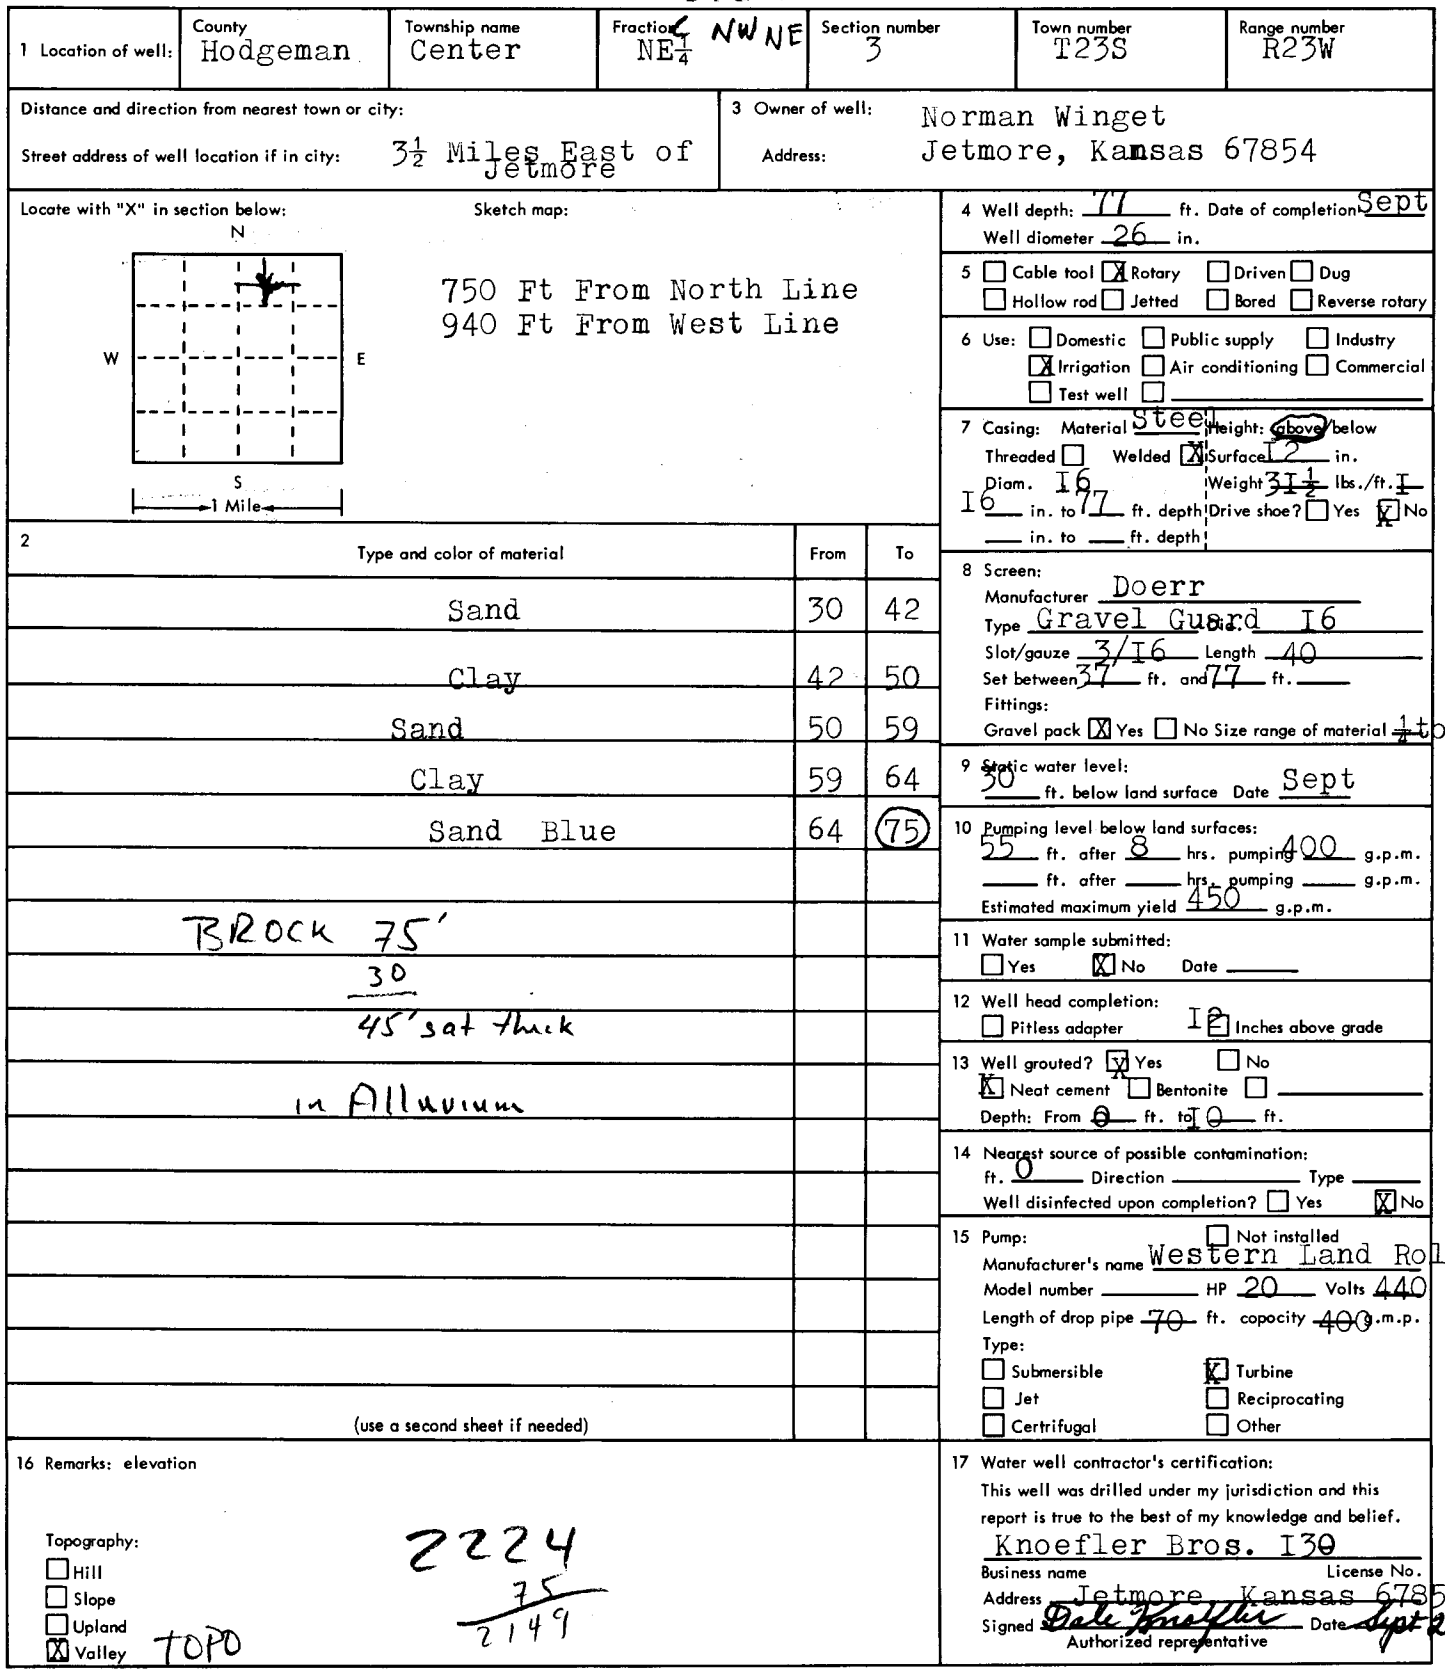 1 Location of well: County Hodgeman Township name Center Fraction C NW NE NE 1/4 Section number 3 Town number T23S Range number R23W
Distance and direction from nearest town or city:
Street address of well location if in city: 3½ Miles East of Jetmore
3 Owner of well: Norman Winget
Address: Jetmore, Kansas 67854
Locate with "X" in section below: Sketch map:
N
W E
S
1 Mile
750 Ft From North Line
940 Ft From West Line
4 Well depth: 77 ft. Date of completion Sept
Well diometer 26 in.
5 Cable tool X Rotary Driven Dug
Hollow rod Jetted Bored Reverse rotary
6 Use: Domestic Public supply Industry
X Irrigation Air conditioning Commercial
Test well
7 Casing: Material Steel Height: above/below
Threaded Welded X Surface I2 in.
Diam. I6 Weight 3I½ lbs./ft. I
I6 in. to 77 ft. depth Drive shoe? Yes X No
in. to ft. depth
2 Type and color of material From To
Sand 30 42
Clay 42 50
Sand 50 59
Clay 59 64
Sand Blue 64 75
BROCK 75'
30
45' sat thick
in Alluvium
(use a second sheet if needed)
8 Screen:
Manufacturer Doerr
Type Gravel Guard I6
Slot/gauze 3/I6 Length 40
Set between 37 ft. and 77 ft.
Fittings:
Gravel pack X Yes No Size range of material ¼ to
9 Static water level:
30 ft. below land surface Date Sept
10 Pumping level below land surfaces:
55 ft. after 8 hrs. pumping 400 g.p.m.
ft. after hrs. pumping g.p.m.
Estimated maximum yield 450 g.p.m.
11 Water sample submitted:
Yes X No Date
12 Well head completion:
Pitless adapter I2 Inches above grade
13 Well grouted? X Yes No
X Neat cement Bentonite
Depth: From 0 ft. to I0 ft.
14 Nearest source of possible contamination:
ft. 0 Direction Type
Well disinfected upon completion? Yes X No
15 Pump: Not installed
Manufacturer's name Western Land Rol
Model number HP 20 Volts 440
Length of drop pipe 70 ft. copocity 400 g.m.p.
Type:
Submersible X Turbine
Jet Reciprocating
Certrifugal Other
16 Remarks: elevation
Topography:
Hill
Slope
Upland
X Valley TOPO
2224
75
2149
17 Water well contractor's certification:
This well was drilled under my jurisdiction and this
report is true to the best of my knowledge and belief.
Knoefler Bros. I30
Business name License No.
Address Jetmore Kansas 6785
Signed Dale Knoefler Date Sept 2
Authorized representative